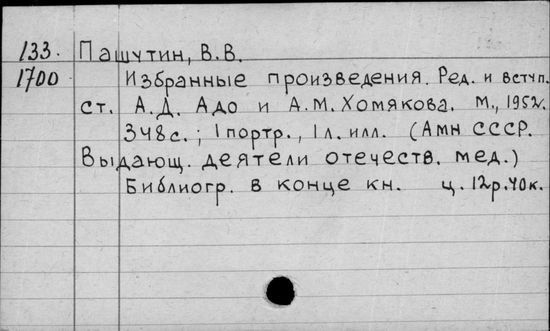 133. Пашутин, В.В.
1700 Избранные произведения. Ред. и вступ.
ст. А.Д. Адо и А.М. Хомякова. М., 1952г.
348 с.; 1 портр., 1 л. илл. (Амн СССР.
Выдающ. деятели отечеств. мед.)
Библиогр. в конце кн. ц. 12р.40к.